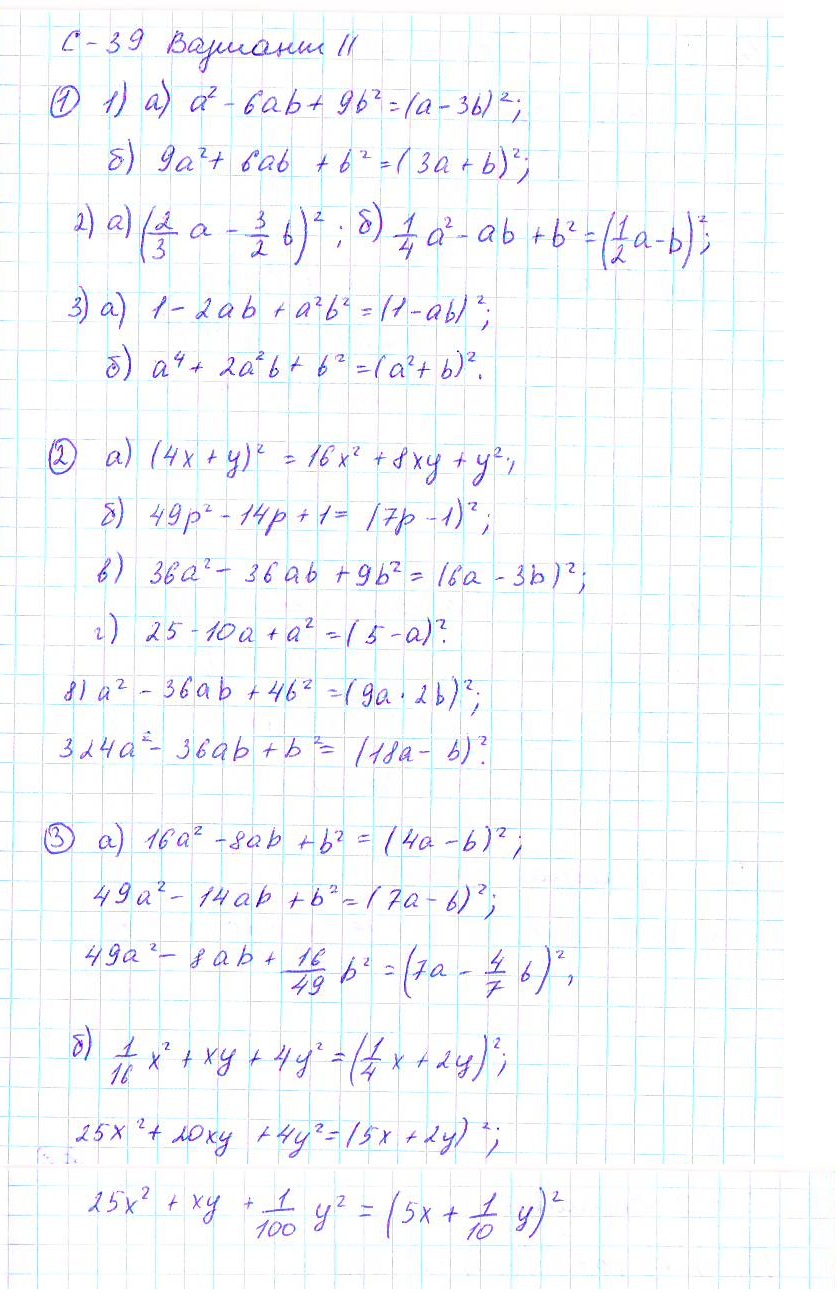 С-39 Вариант II
① 1) а) a² - 6ab + 9b² = (a - 3b)²;
б) 9a² + 6ab + b² = (3a + b)²;
2) а) (2/3 a - 3/2 b)²; б) 1/4 a² - ab + b² = (1/2 a - b)²;
3) а) 1 - 2ab + a²b² = (1 - ab)²;
б) a⁴ + 2a²b + b² = (a² + b)².
② а) (4x + y)² = 16x² + 8xy + y²;
б) 49p² - 14p + 1 = (7p - 1)²;
в) 36a² - 36ab + 9b² = (6a - 3b)²;
г) 25 - 10a + a² = (5 - a)².
8) a² - 36ab + 4b² = (9a · 2b)²;
324a² - 36ab + b² = (18a - b)².
③ а) 16a² - 8ab + b² = (4a - b)²;
49a² - 14ab + b² = (7a - b)²;
49a² - 8ab + 16/49 b² = (7a - 4/7 b)²,
б) 1/16 x² + xy + 4y² = (1/4 x + 2y)²;
25x² + 20xy + 4y² = (5x + 2y)²;
25x² + xy + 1/100 y² = (5x + 1/10 y)²